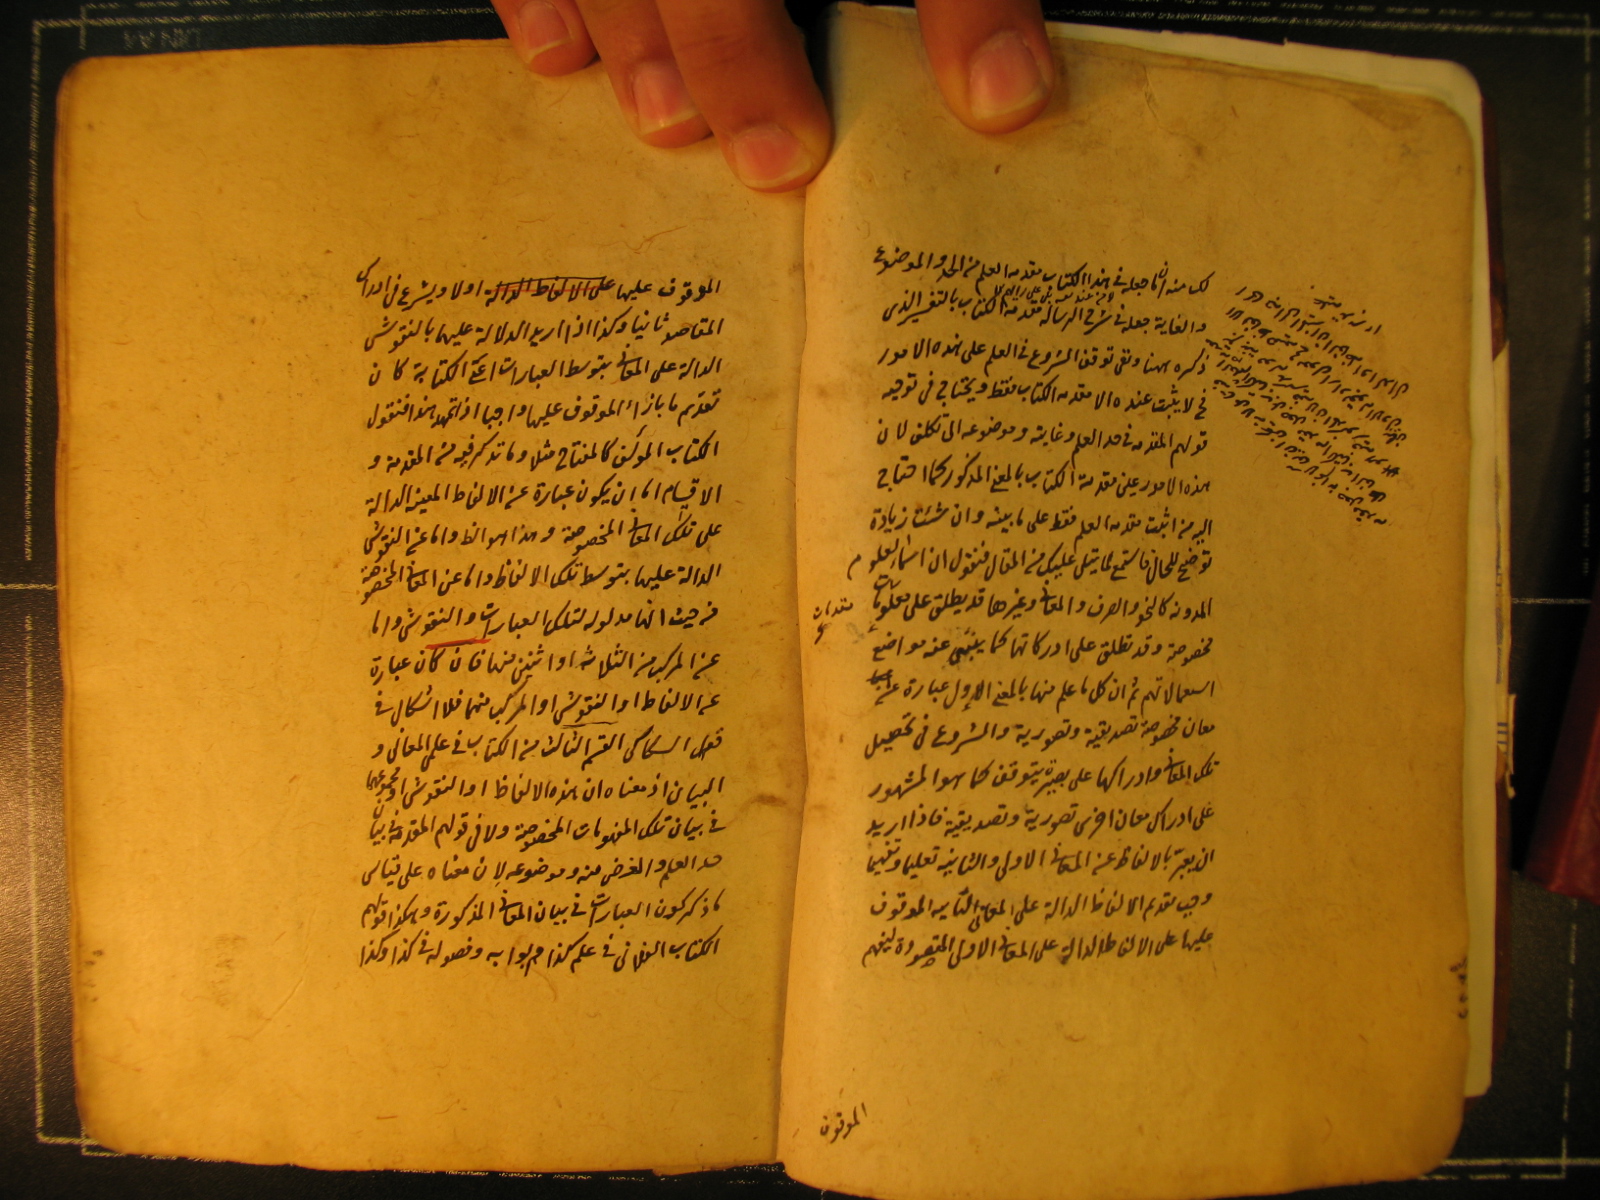 لك منه ان ما جعله في هذا الكتاب مقدمة العلم من الحد والموضوع
والغاية جعله في شرح الرسالة مقدمة الكتاب بالتفسير الذي
ذكره ههنا ونفى توقف الشروع في العلم على هذه الامور
فح لا يثبت عنده الا مقدمة الكتاب فقط ويحتاج في توجيه
قولهم المقدمة في حد العلم وغايته وموضوعه الى تكلف لان
هذه الامور عين مقدمة الكتاب بالمعنى المذكور كما احتاج
اليه من اثبت مقدمة العلم فقط على ما بينه وان شئت زيادة
توضيح للحال فاستمع لما يتلى عليك من المقال فنقول ان اسماء العلوم
المدونة كالنحو والصرف والمعاني وغيرها قد يطلق على معلومات
مخصوصة وقد تطلق على ادراكاتها كما ينبئ عنه مواضع
استعمالاتهم ثم ان كل ما علم منها بالمعنى الاول عبارة عن
معان مخصوصة تصديقية وتصورية والشروع في تحصيل
تلك المعاني وادراكها على بصيرة يتوقف كما هو المشهور
على ادراك معان اخرى تصورية وتصديقية فاذا اريد
ان يعبر بالالفاظ عن المعاني الاولى والثانية تعليما وتفهيما
وجب تقديم الالفاظ الدالة على المعاني الثانية الموقوف
عليها على الالفاظ الدالة على المعاني الاولى المقصودة ليفهم
الموقوف
الموقوف عليها على الالفاظ الدالة اولا ويشرع في ادراك
المقاصد ثانيا وكذا اذا اريد الدلالة عليها بالنقوش
الدالة على المعاني بتوسط العبارات اعني الكتابة كان
تقديم ما بازاء الموقوف عليها واجبا اذا تمهد هذا فنقول
الكتاب المؤلف كالمفتاح مثلا وما تذكر فيه من المقدمة و
الاقسام اما ان يكون عبارة عن الالفاظ المعينة الدالة
على تلك المعاني المخصوصة وهذا هو الظ واما عن النقوش
الدالة عليها بتوسط تلك الالفاظ واما عن المعاني المخصوصة
من حيث انها مدلولة لتلك العبارات والنقوش واما
عن المركب من الثلاثة او اثنين منها فان كان عبارة
عن الالفاظ او النقوش او المركب منهما فلا اشكال في
قول السكاكي القسم الثالث من الكتاب في علمي المعاني و
البيان اذ معناه ان هذه الالفاظ او النقوش او مجموعهما
في بيان تلك المفهومات المخصوصة ولا في قولهم المقدمة في بيان
حد العلم والغرض منه وموضوعه لان معناه على قياس
ما ذكر كون العبارات في بيان المعاني المذكورة وهكذا قولهم
الكتاب الفلاني في علم كذا وابوابه وفصوله في كذا وكذا